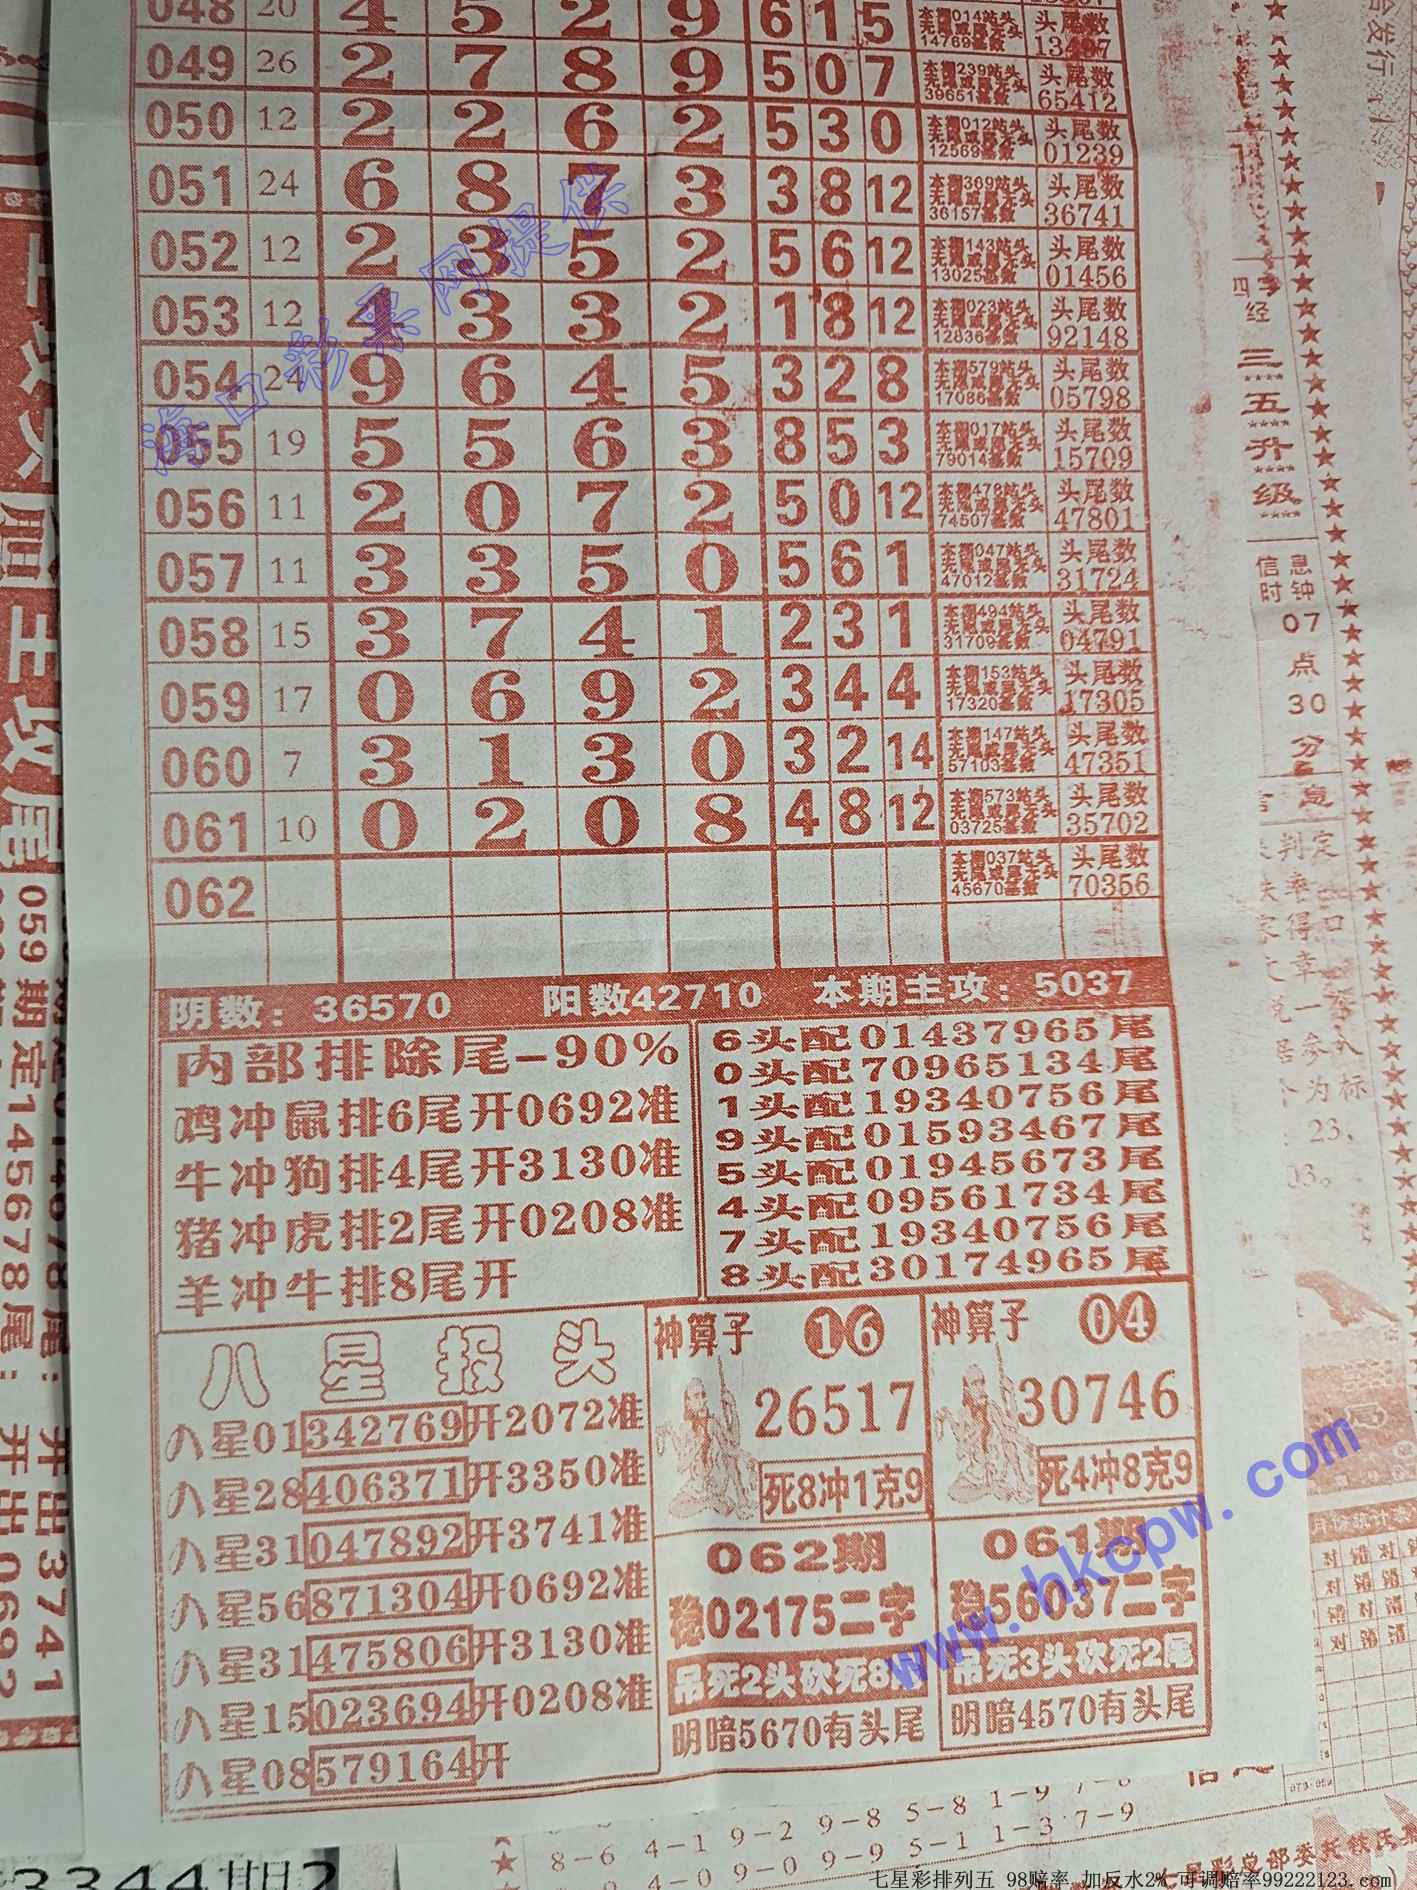 048 20 4 5 2 9 6 1 5 本期014站头 无尾或尾无头 14769基数 头尾数 13497
049 26 2 7 8 9 5 0 7 本期239站头 无尾或尾无头 39651基数 头尾数 65412
050 12 2 2 6 2 5 3 0 本期012站头 无尾或尾无头 12569基数 头尾数 01239
051 24 6 8 7 3 3 8 12 本期309站头 无尾或尾无头 36157基数 头尾数 36741
052 12 2 3 5 2 5 6 12 本期143站头 无尾或尾无头 13025基数 头尾数 01456
053 12 4 3 3 2 1 8 12 本期023站头 无尾或尾无头 12836基数 头尾数 92148
054 24 9 6 4 5 3 2 8 本期579站头 无尾或尾无头 17086基数 头尾数 05798
055 19 5 5 6 3 8 5 3 本期017站头 无尾或尾无头 79014基数 头尾数 15709
056 11 2 0 7 2 5 0 12 本期478站头 无尾或尾无头 74507基数 头尾数 47801
057 11 3 3 5 0 5 6 1 本期047站头 无尾或尾无头 47012基数 头尾数 31724
058 15 3 7 4 1 2 3 1 本期494站头 无尾或尾无头 31709基数 头尾数 04791
059 17 0 6 9 2 3 4 4 本期153站头 无尾或尾无头 17320基数 头尾数 17305
060 7 3 1 3 0 3 2 14 本期147站头 无尾或尾无头 57103基数 头尾数 47351
061 10 0 2 0 8 4 8 12 本期573站头 无尾或尾无头 03725基数 头尾数 35702
062 本期037站头 无尾或尾无头 45670基数 头尾数 70356
阴数：36570 阳数42710 本期主攻：5037
内部排除尾-90%
鸡冲鼠排6尾开0692准
牛冲狗排4尾开3130准
猪冲虎排2尾开0208准
羊冲牛排8尾开
6头配01437965尾
0头配70965134尾
1头配19340756尾
9头配01593467尾
5头配01945673尾
4头配09561734尾
7头配19340756尾
8头配30174965尾
八星报头
八星01342769开2072准
八星28406371开3350准
八星31047892开3741准
八星56871304开0692准
八星31475806开3130准
八星15023694开0208准
八星08579164开
神算子 16
26517
死8冲1克9
062期
稳02175二字
吊死2头砍死8尾
明暗5670有头尾
神算子 04
30746
死4冲8克9
061期
稳56037二字
吊死3头砍死2尾
明暗4570有头尾
海口彩票网提供
www.hkcpw.com
059期定145678尾：开出0692
四字经
三五升级
信息时钟
07点30分
8-6 4-1 9-2 9-8 5-8 1-9 7-8
4-0 9-0 9-9 5-1 1-3 7-9
3344期2
七星彩排列五 98赔率 加反水2% 可调赔率99222123.com